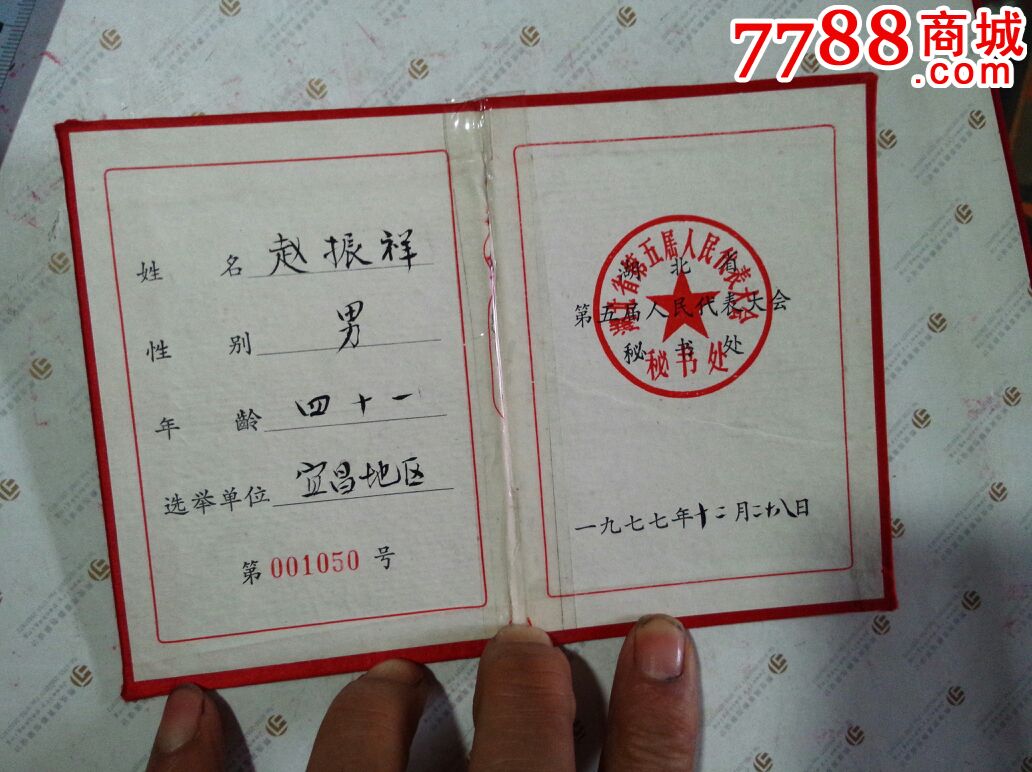 7788商城
.com
姓 名 赵振祥
性 别 男
年 龄 四十一
选举单位 宜昌地区
第 001050 号
省第五届人民代表大会
秘书处
湖北省
第五届人民代表大会
秘书处
一九七七年十二月二十八日